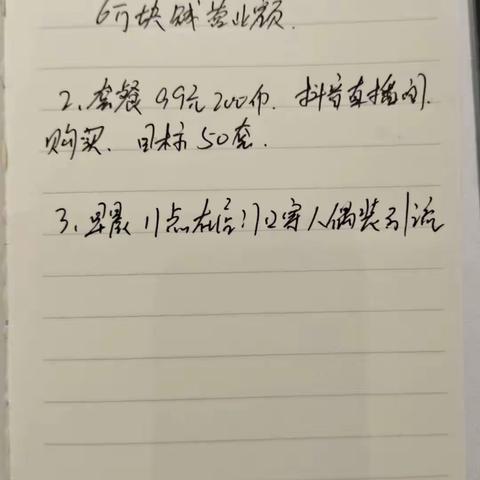 6万块钱营业额.
2、套餐 99元200币. 抖音直播间.
购买、目标50套.
3、早晨 11点在店门口穿人偶装引流